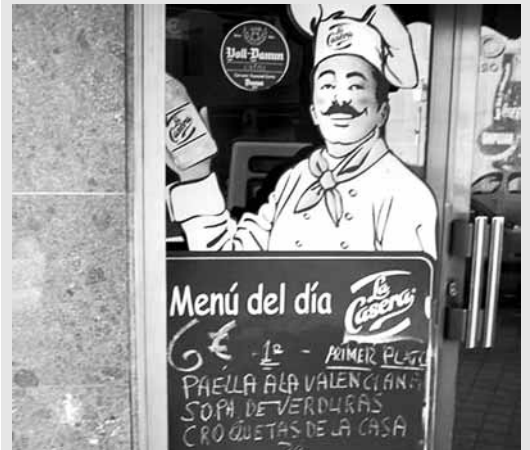 La Casera
Voll-Damm
La Casera
Menú del día
La Casera
6€ - 1º - PRIMER PLATO
PAELLA A LA VALENCIANA
SOPA DE VERDURAS
CROQUETAS DE LA CASA